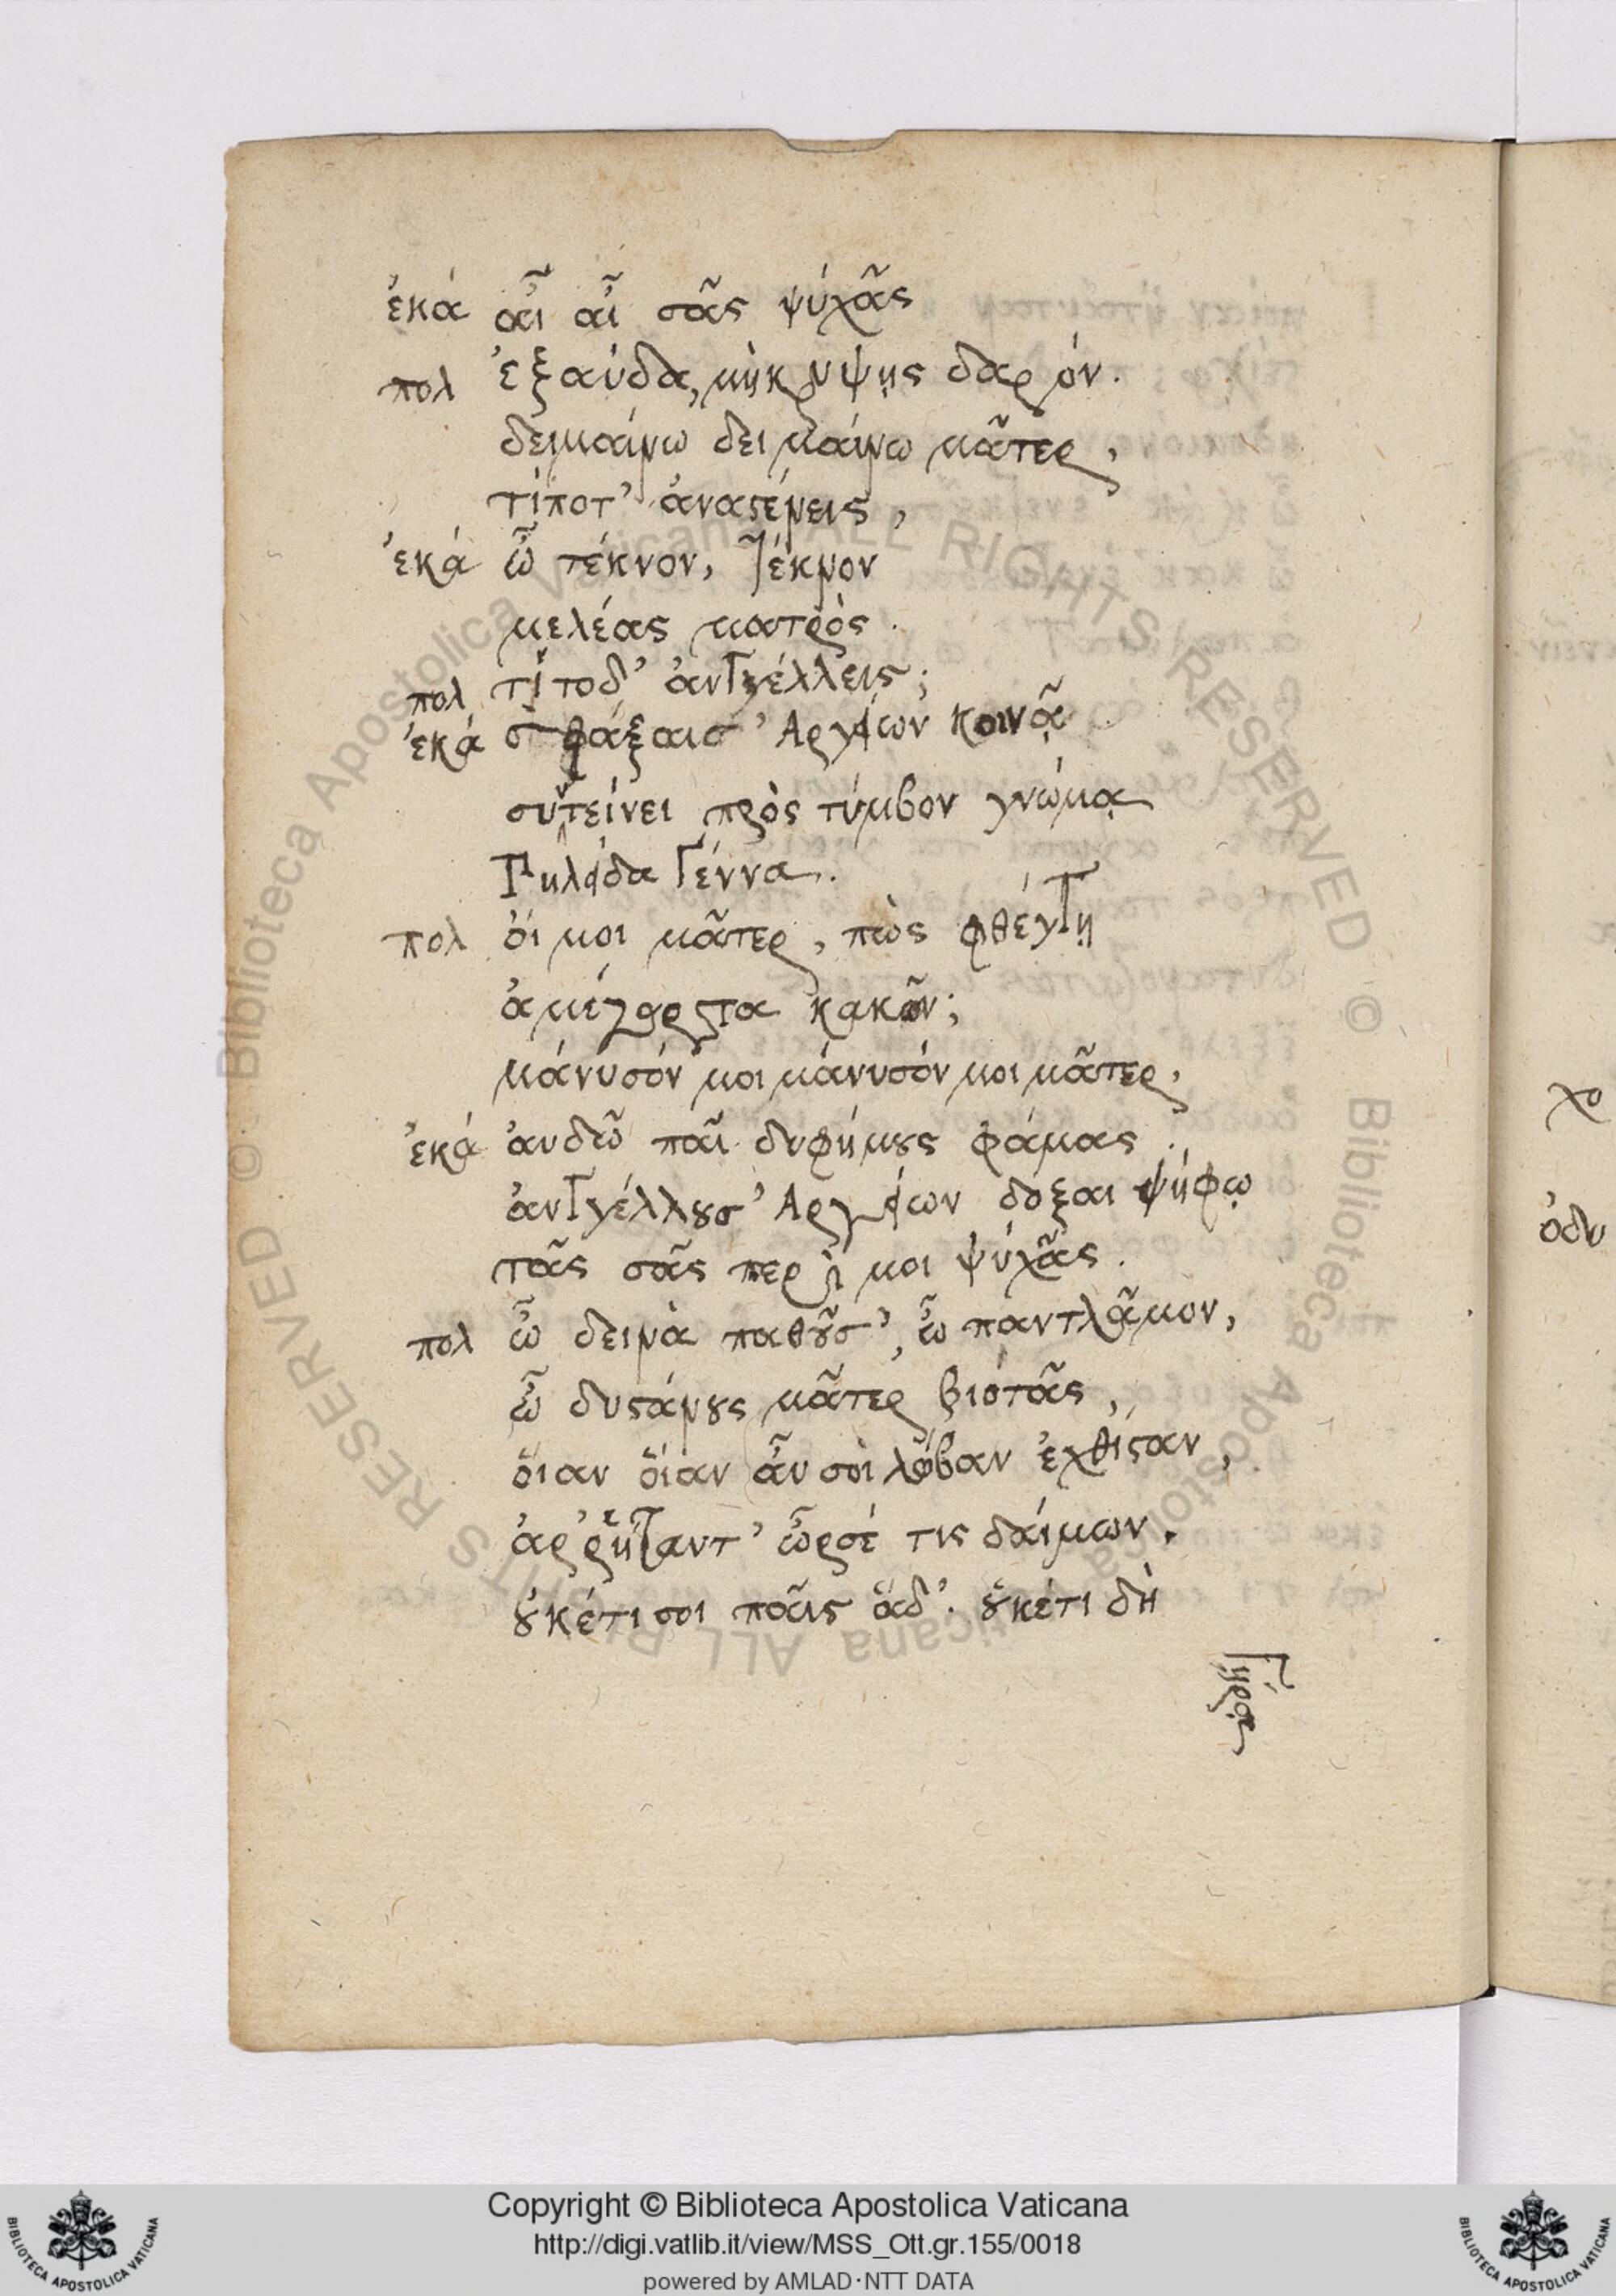 ἑκά αἶ αἶ σᾶς ψυχᾶς
πολ ἐξαύδα, μὴ κρυψῃς δαρόν.
δειμαίνω δειμαίνω μᾶτερ,
τίποτ' ἀναστένεις,
ἑκά ὦ τέκνον, τέκνον
μελέας ματρὸς.
πολ τί τοδ' ἀνγγέλλεις;
ἑκά σφάξαισ' Αργείων κοινᾷ
συντείνει πρὸς τύμβον γνώμᾳ
Πηλείδα γέννα.
πολ οἴ μοι μᾶτερ, πῶς φθέγγῃ
ἀμέγαρτα κακῶν;
μάνυσόν μοι μάνυσόν μοι μᾶτερ,
ἑκά ἀυδῶ παῖ δυφήμους φάμας.
ἀνγγέλλουσ' Αργείων δοξαι ψήφῳ
τᾶς σᾶς περί μοι ψυχᾶς.
πολ ὦ δεινὰ παθοῦσ', ὦ παντλᾶμον,
ὦ δυστάνους μᾶτερ βιοτᾶς,
οἵαν οἵαν ἆυ σοὶ λώβαν ἐχθίσταν,
ἀρρήταντ' ὦρσέ τις δαίμων.
οὐκέτι σοι παῖς ἅδ'. οὐκέτι δὴ
γήρᾳ
χο
ὀδυ
Copyright © Biblioteca Apostolica Vaticana
http://digi.vatlib.it/view/MSS_Ott.gr.155/0018
powered by AMLAD·NTT DATA